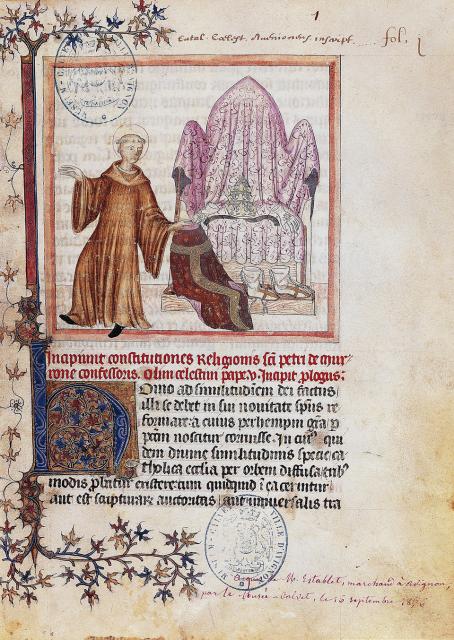 1
Catal. Collect. Avenionens. inscript. .... fol. 1
Incipiunt constitutiones Religionis sci petri de mur
rone confessoris. Olim celestini pape. v. Incipit plogus:
Omo ad similitudinem dei factus
illi se debet in sui novitate spus re
formare a cuius perhempni gra p
pcm noscitur corruisse. In cui qui
dem divine similitudinis specie ca
tholica ecclia per orbem diffusa
modis plantur existere cum quicquid i ea cernitur
aut est scripturarum auctoritas aut universalis tra
Acquis de M. Establet, marchand à Avignon,
par le Musée-Calvet, le 16 septembre